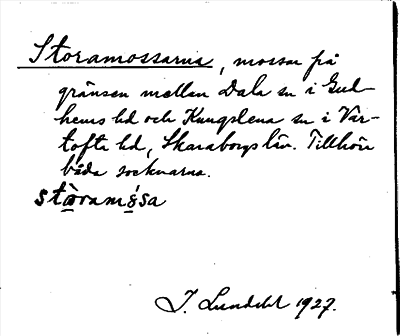 Storamossarna, mossar på
gränsen mellan Dala sn i Gud-
hems hd och Kungslena sn i Var-
tofta hd, Skaraborgs län. Tillhör
båda socknarna.
stòramósa
J. Lundahl 1927.